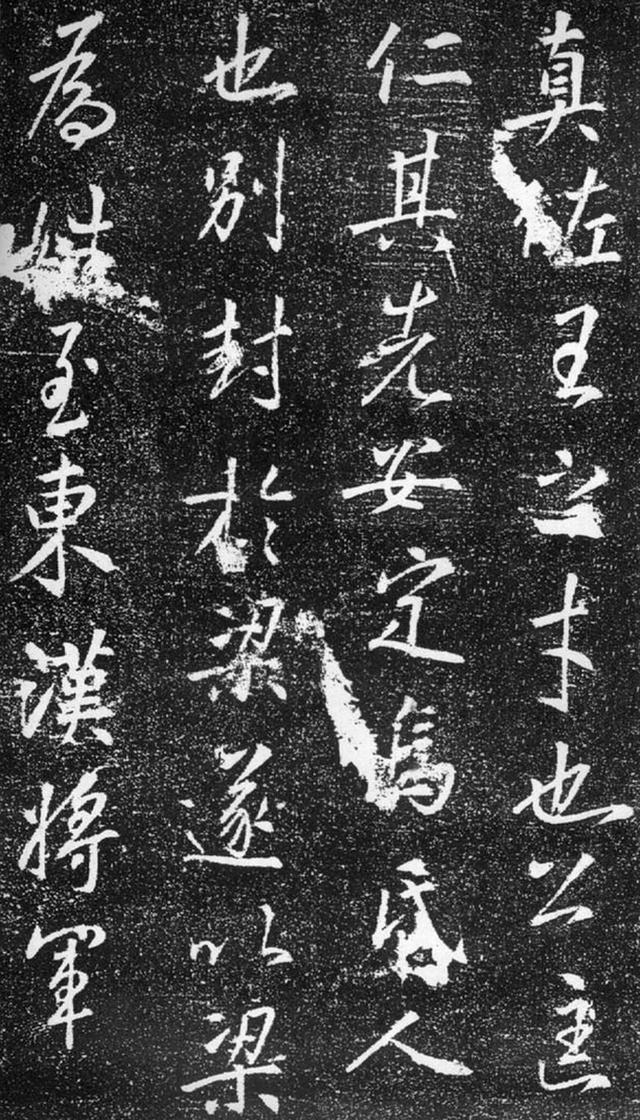 真佐王之才也公匡
仁其先安定烏氏人
也別封於梁遂以梁
為姓至東漢將軍